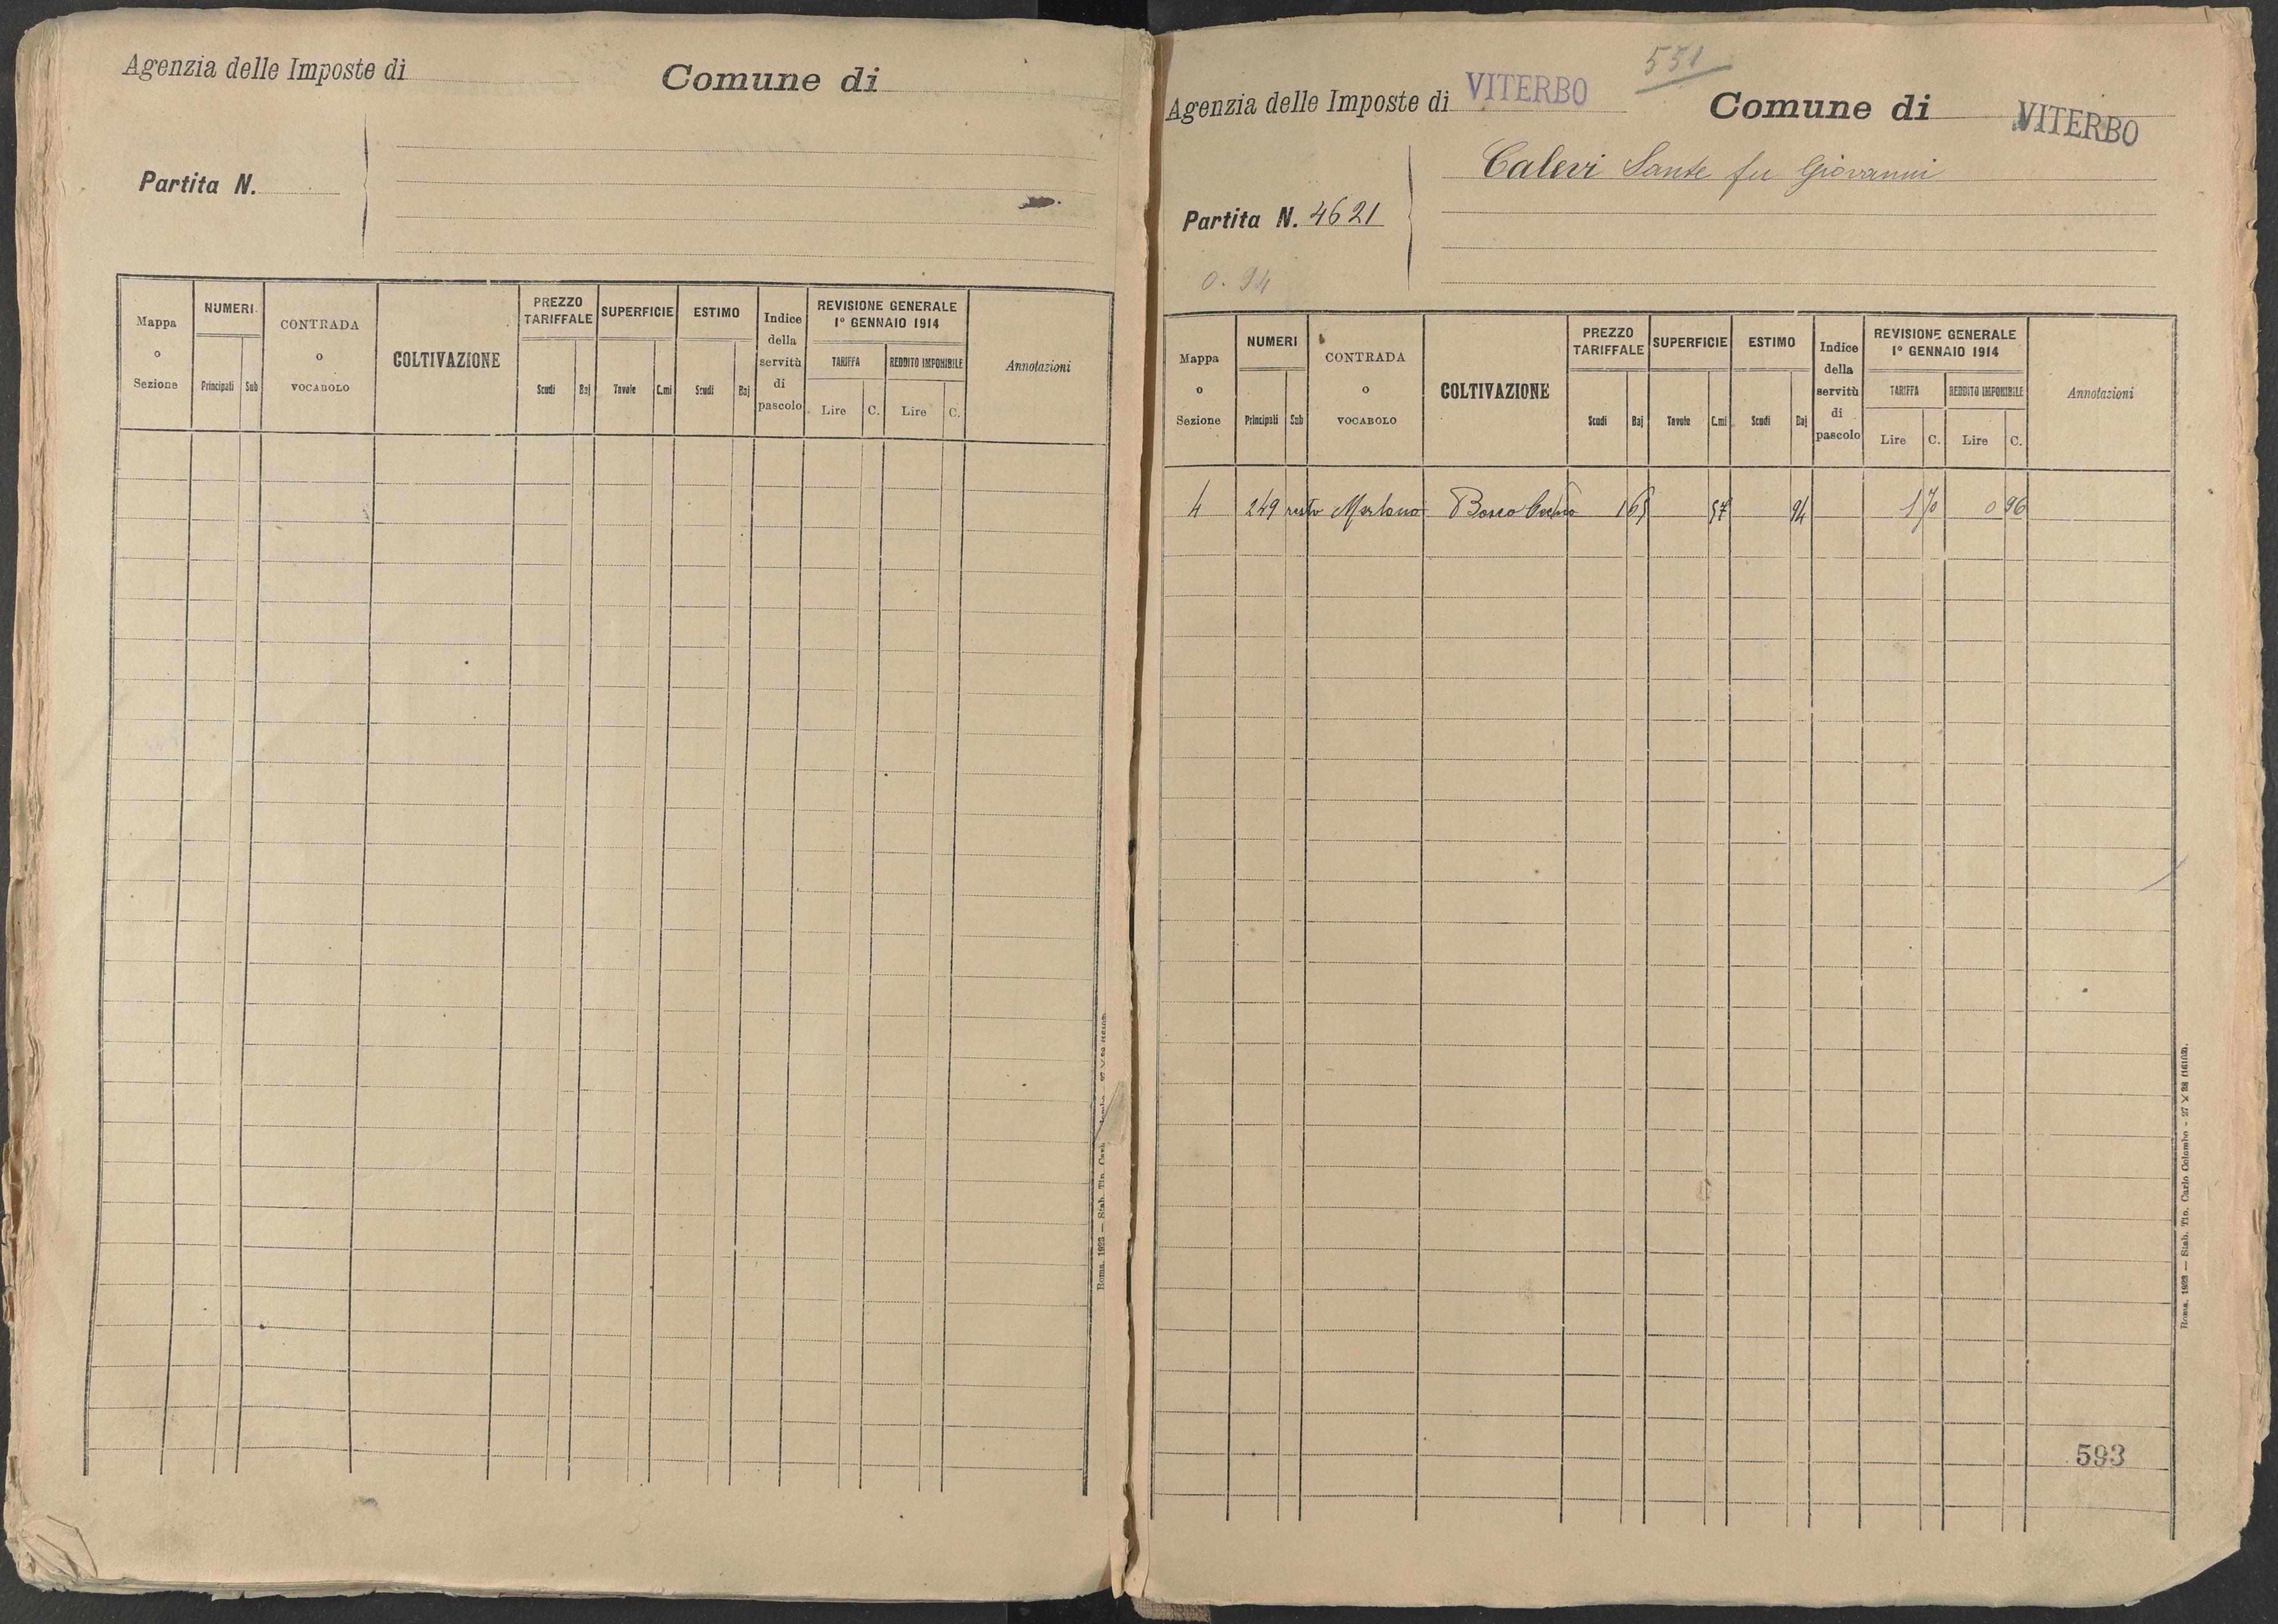 Agenzia delle Imposte di
Comune di
Partita N.
Mappa o Sezione
NUMERI
Principali Sub
CONTRADA o VOCABOLO
COLTIVAZIONE
PREZZO TARIFFALE
Scudi Baj
SUPERFICIE
Tavole C.mi
ESTIMO
Scudi Baj
Indice della servitù di pascolo
REVISIONE GENERALE
1º GENNAIO 1914
TARIFFA
Lire C.
REDDITO IMPONIBILE
Lire C.
Annotazioni
Roma. 1923 — Stab. Tip.
551
Agenzia delle Imposte di VITERBO
Comune di VITERBO
Calevi Sante fu Giovanni
Partita N. 4621
0.94
Mappa o Sezione
NUMERI
Principali Sub
CONTRADA o VOCABOLO
COLTIVAZIONE
PREZZO TARIFFALE
Scudi Baj
SUPERFICIE
Tavole C.mi
ESTIMO
Scudi Baj
Indice della servitù di pascolo
REVISIONE GENERALE
1º GENNAIO 1914
TARIFFA
Lire C.
REDDITO IMPONIBILE
Lire C.
Annotazioni
4 249 resto Bosco 1 65 57 94 1 70 0 96
Roma. 1923 — Stab. Tip. Carlo Colombo
593